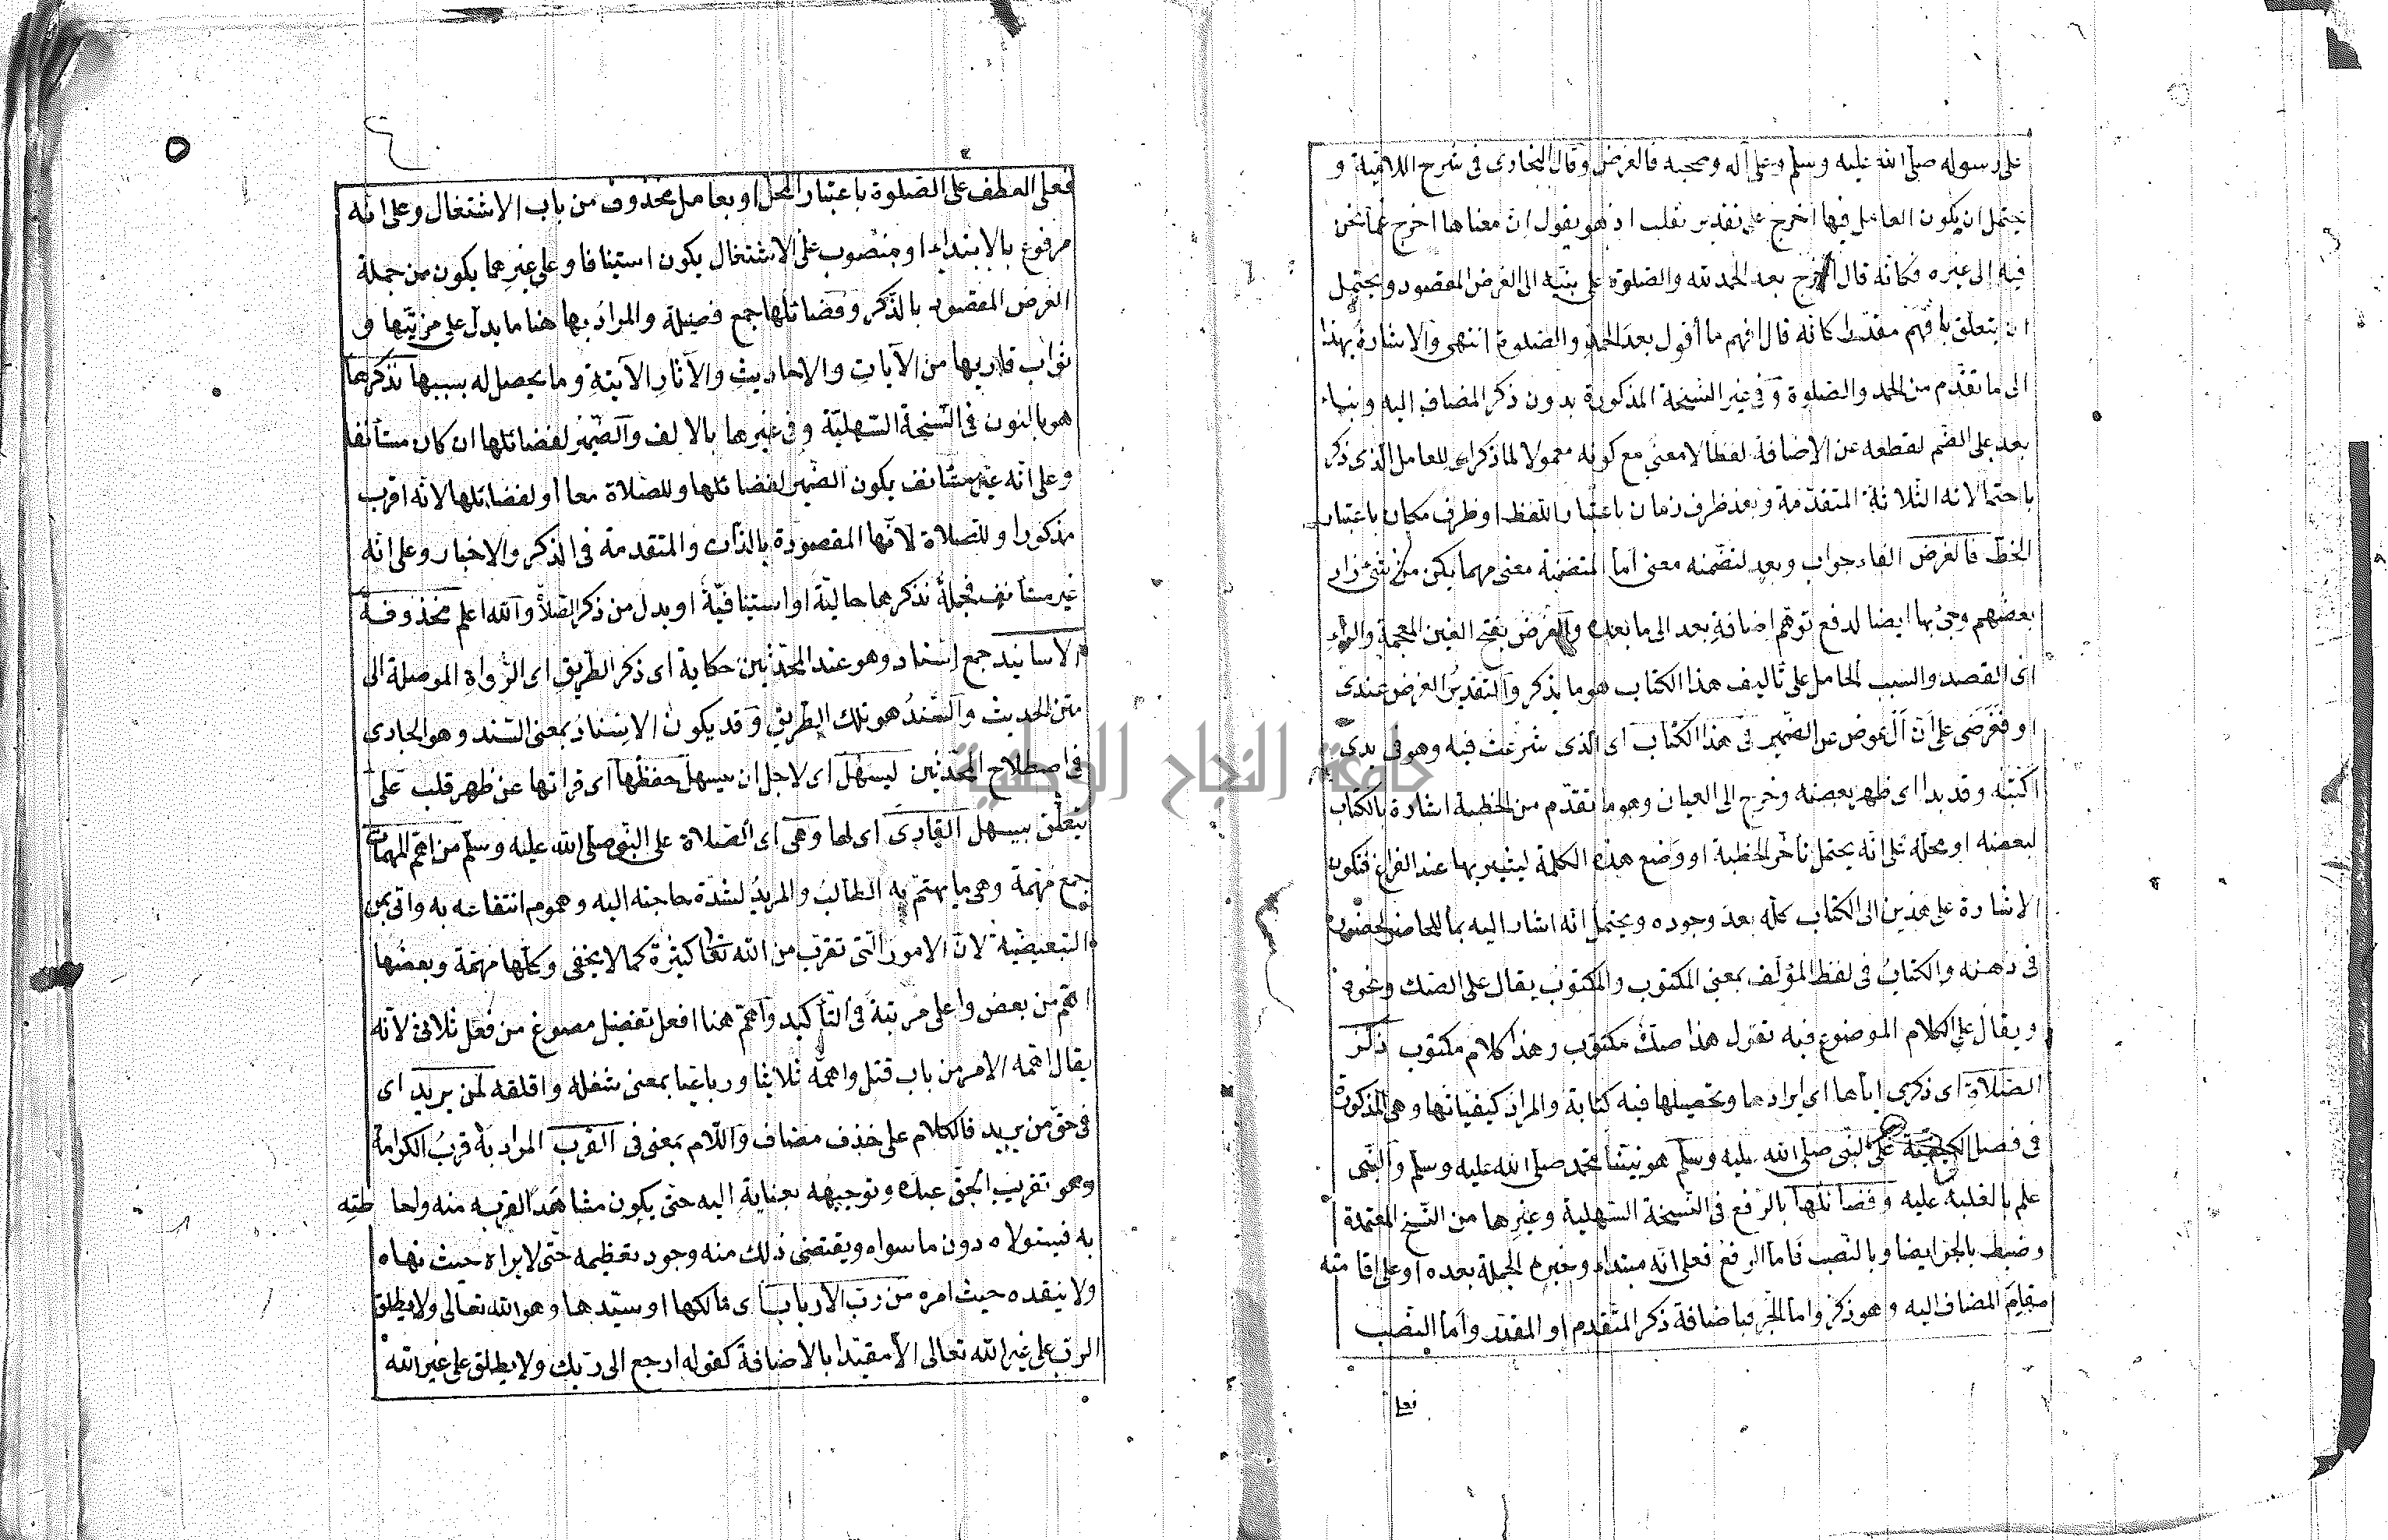 على رسوله صلى الله عليه وسلم وعلى آله وصحبه فالغرض وقال البخارى فى شرح اللامية و
يحتمل ان يكون العامل فيها اخرج على تقدير نقلب اذ هو يقول ان معناها اخرج عما نحن
فيه الى غيره فكأنه قال اخرج بعد الحمد لله والصلوة على نبيه الى الغرض المقصود ويحتمل
ان يتعلق بافهم مقدرا كانه قال افهم ما أقول بعد الحمد والصلوة انتهى والاشارة بهذا
الى ما تقدم من الحمد والصلوة وفى غير النسخة المذكورة بدون ذكر المضاف اليه وبناء
بعد على الضم لقطعه عن الاضافة لفظا لا معنى مع كونه معمولا لما ذكر اى للعامل الذى ذكر
باحتمالاته الثلاثة المتقدمة وبعد ظرف زمان باعتبار اللفظ او ظرف مكان باعتبار
الخط فالغرض الفاء جواب وبعد لتضمنه معنى اما المتضمنة معنى مهما يكن من شئ زاد
بعضهم وجئ بها ايضا لدفع توهم اضافة بعد الى ما بعده والغرض بفتح الغين المعجمة والراء
اى القصد والسبب الحامل على تأليف هذا الكتاب هو ما يذكر والتقدير الغرض عندى
او فغرضى على ان ال عوض عن الضمير فى هذا الكتاب اى الذى شرعت فيه وهو فى يدى
اكتبه وقد بدا اى ظهر بعضه وخرج الى العيان وهو ما تقدم من الخطبة اشارة بالكتاب
لبعضه او محله على انه يحتمل تأخر الخطبة او وضع هذه الكلمة ليشير بها عند الفراغ فتكون
الاشارة على هذين الى الكتاب كله بعد وجوده ويحتمل انه اشار اليه بما للحاضر لحضوره
فى ذهنه والكتاب فى لفظ المؤلف بمعنى المكتوب والمكتوب يقال على الصك ونحوه
ويقال على الكلام الموضوع فيه تقول هذا صك مكتوب وهذا كلام مكتوب ذكر
الصلاة اى ذكرى اياها اى ايرادها وتحصيلها فيه كتابة والمراد كيفياتها وهى المذكورة
فى فصل الكيفية على النبى صلى الله عليه وسلم هو نبينا محمد صلى الله عليه وسلم والنبى
علم بالغلبة عليه وفضائلها بالرفع فى النسخة السهلية وغيرها من النسخ المعتمدة
وضبط بالجر ايضا وبالنصب فاما الرفع فعلى انه مبتداء وخبره الجملة بعده او على اقامته
مقام المضاف اليه وهو ذكر واما الجر فباضافة ذكر المتقدم او المقدر واما النصب
فعلى
فعلى العطف على الصلوة باعتبار المحل او بعامل محذوف من باب الاشتغال وعلى انه
مرفوع بالابتداء او منصوب على الاشتغال يكون استينافا وعلى غيرهما يكون من جملة
الغرض المقصود بالذكر وفضائلها جمع فضيلة والمراد بها هنا ما يدل على مزيتها و
ثواب قاريها من الآيات والاحاديث والآثار الآتية وما يحصل له بسببها نذكرها
هو بالنون فى النسخة السهلية وفى غيرها بالالف والضمير لفضائلها ان كان مستأنفا
وعلى انه غير مستأنف يكون الضمير لفضائلها وللصلاة معا أو لفضائلها لانه اقرب
مذكورا وللصلاة لانها المقصودة بالذات والمتقدمة فى الذكر والاخبار وعلى انه
غير مستأنف فجملة نذكرها حالية او استينافية او بدل من ذكر الصلاة والله اعلم محذوفة
الاسانيد جمع اسناد وهو عند المحدثين حكاية اى ذكر الطريق اى الرواة الموصلة الى
متن الحديث والسند هو تلك الطريق وقد يكون الاسناد بمعنى السند وهو الجارى
فى اصطلاح المحدثين ليسهل اى لاجل ان يسهل حفظها اى قراتها عن ظهر قلب على
يتعلق بيسهل القارى اى لها وهى اى الصلاة على النبى صلى الله عليه وسلم من اهم المهمات
جمع مهمة وهى ما يهتم به الطالب والمريد لشدة حاجته اليه وعموم انتفاعه به واتى بمن
التبعيضية لان الامور التى تقرب من الله تعا كثيرة كما لا يخفى وكلها مهمة وبعضها
اهم من بعض واعلى مرتبة فى التأكيد واهم هنا افعل تفضيل مصوغ من فعل ثلاثى لانه
يقال اهمه الامر من باب قتل واهمه ثلاثيا ورباعيا بمعنى شغله واقلقه لمن يريد اى
فى حق من يريد فالكلام على حذف مضاف واللام بمعنى فى القرب المراد به قرب الكرامة
وهو تقريب الحق عبده وتوجيهه بعناية اليه حتى يكون مشاهدا لقربه منه ولحا طته
به فيتولاه دون ما سواه ويقتضى ذلك منه وجود تعظيمه حتى لا يراه حيث نهاه
ولا يفقده حيث امره من رب الارباب اى مالكها او سيدها وهو الله تعالى ولا يطلق
الرب على غير الله تعالى الا مقيدا بالاضافة كقوله ارجع الى ربك ولا يطلق على غير الله
جامعة النجاح الوطنية